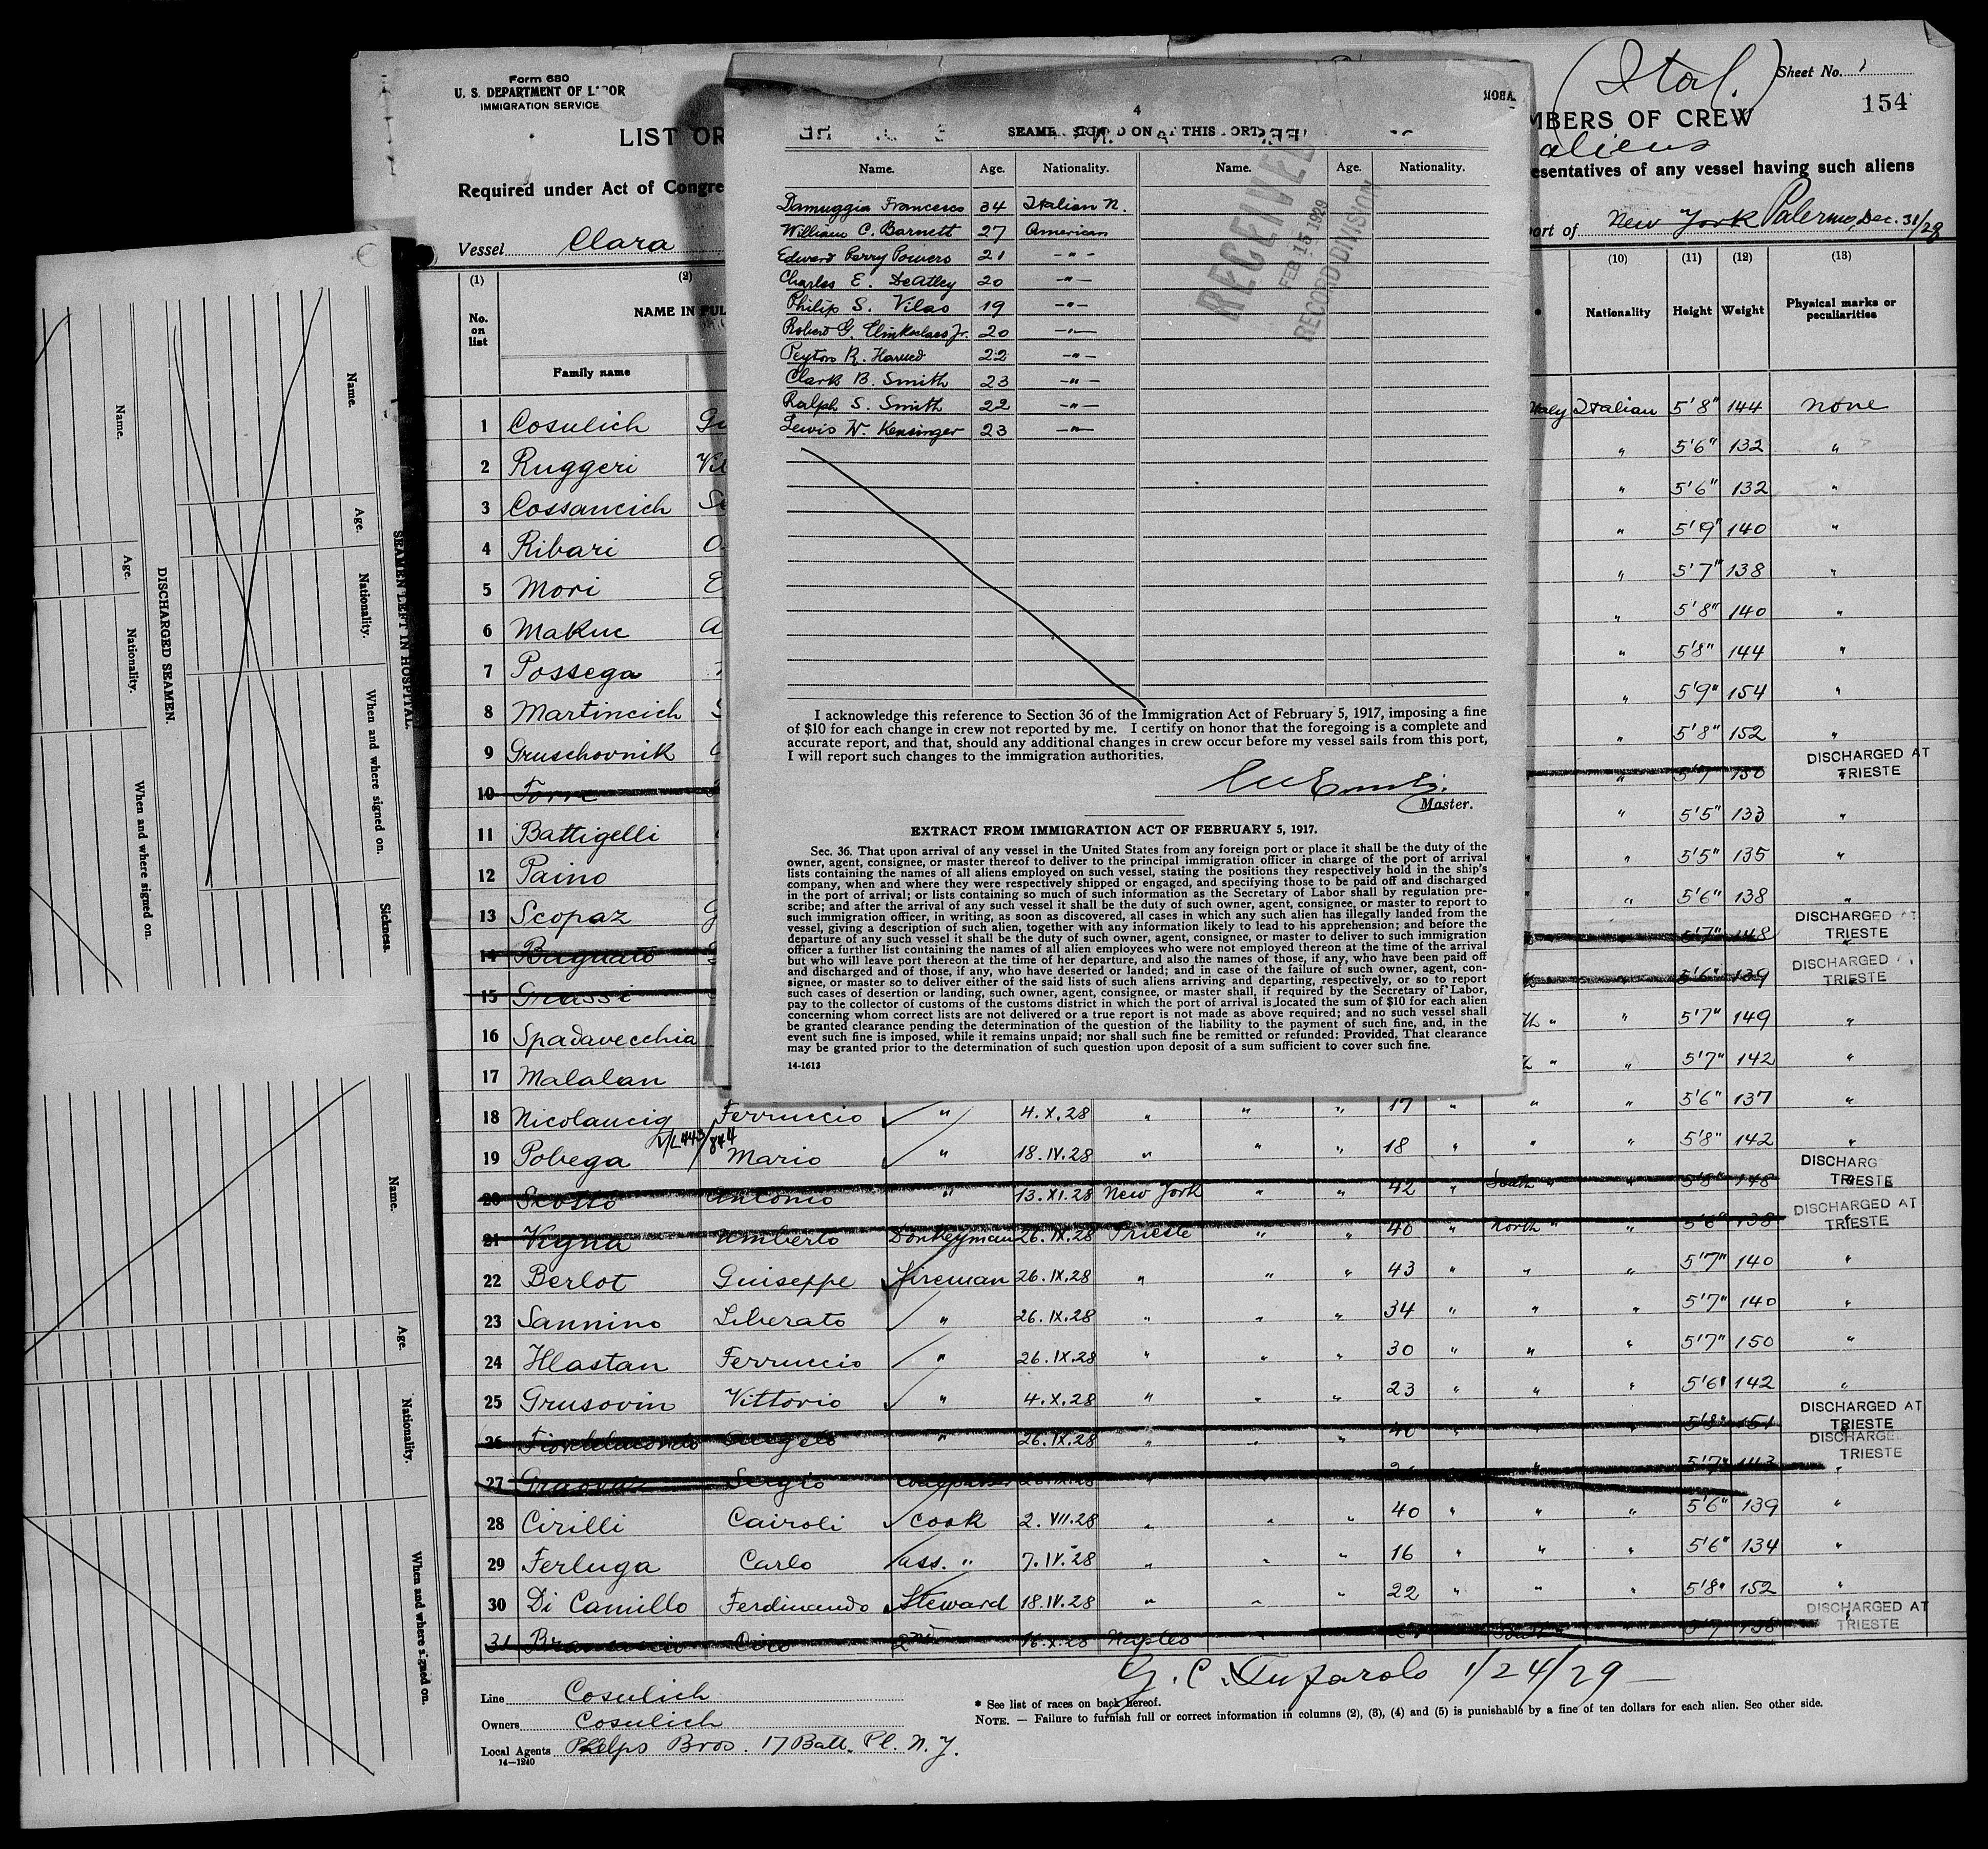 Form 680
U. S. DEPARTMENT OF LABOR
IMMIGRATION SERVICE
LIST OR
Required under Act of Congre
Vessel Clara
(Ital.)
Sheet No. 1
154
MBERS OF CREW
aliens
esentatives of any vessel having such aliens
ort of New York Palermo, Dec. 31/28
(1) (2) (10) (11) (12) (13)
No. on list NAME IN FUL Nationality Height Weight Physical marks or peculiarities
Family name
4
SEAMEN SIGNED ON AT THIS PORT.
Name. Age. Nationality. Name. Age. Nationality.
Damuggia Francesco 34 Italian N.
William C. Barnett 27 American
Edward Perry Powers 21 - " -
Charles E. DeAtley 20 - " -
Philip S. Vilas 19 - " -
Robert G. Clinkscales Jr. 20 - " -
Peyton R. Harned 22 - " -
Clark B. Smith 23 - " -
Ralph S. Smith 22 - " -
Lewis W. Kensinger 23 - " -
RECEIVED
FEB 15 1929
RECORD DIVISION
I acknowledge this reference to Section 36 of the Immigration Act of February 5, 1917, imposing a fine
of $10 for each change in crew not reported by me. I certify on honor that the foregoing is a complete and
accurate report, and that, should any additional changes in crew occur before my vessel sails from this port,
I will report such changes to the immigration authorities.
Master.
EXTRACT FROM IMMIGRATION ACT OF FEBRUARY 5, 1917.
Sec. 36. That upon arrival of any vessel in the United States from any foreign port or place it shall be the duty of the
owner, agent, consignee, or master thereof to deliver to the principal immigration officer in charge of the port of arrival
lists containing the names of all aliens employed on such vessel, stating the positions they respectively hold in the ship's
company, when and where they were respectively shipped or engaged, and specifying those to be paid off and discharged
in the port of arrival; or lists containing so much of such information as the Secretary of Labor shall by regulation pre-
scribe; and after the arrival of any such vessel it shall be the duty of such owner, agent, consignee, or master to report to
such immigration officer, in writing, as soon as discovered, all cases in which any such alien has illegally landed from the
vessel, giving a description of such alien, together with any information likely to lead to his apprehension; and before the
departure of any such vessel it shall be the duty of such owner, agent, consignee, or master to deliver to such immigration
officer a further list containing the names of all alien employees who were not employed thereon at the time of the arrival
but who will leave port thereon at the time of her departure, and also the names of those, if any, who have been paid off
and discharged and of those, if any, who have deserted or landed; and in case of the failure of such owner, agent, con-
signee, or master so to deliver either of the said lists of such aliens arriving and departing, respectively, or so to report
such cases of desertion or landing, such owner, agent, consignee, or master shall, if required by the Secretary of Labor,
pay to the collector of customs of the customs district in which the port of arrival is located the sum of $10 for each alien
concerning whom correct lists are not delivered or a true report is not made as above required; and no such vessel shall
be granted clearance pending the determination of the question of the liability to the payment of such fine, and, in the
event such fine is imposed, while it remains unpaid; nor shall such fine be remitted or refunded: Provided, That clearance
may be granted prior to the determination of such question upon deposit of a sum sufficient to cover such fine.
14-1613
1 Cosulich Gu Italy Italian 5'8" 144 none
2 Ruggeri " 5'6" 132 "
3 Cossancich " 5'6" 132 "
4 Ribari O " 5'9" 140 "
5 Mori E " 5'7" 138 "
6 Makuc A " 5'8" 140 "
7 Possega " 5'8" 144 "
8 Martincich " 5'9" 154 "
9 Gruschovnik " 5'8" 152 "
10 Torre " 5'7 150 DISCHARGED AT TRIESTE
11 Battigelli " 5'5" 133 "
12 Paino " " 5'5" 135 "
13 Scopaz G " " 5'6" 138 "
14 Bugnato 5'7" 148 DISCHARGED AT TRIESTE
15 Grassi 5'6" 139 DISCHARGED A TRIESTE
16 Spadavecchia th " " 5'7" 149 "
17 Malalan " " 5'7" 142 "
18 Nicolaucig Ferruccio " 4.X.28 " " " 17 " " " 5'6" 137 "
19 Pobega Mario " 18.IV.28 " " " 18 " " " 5'8" 142 "
20 Antonio " 13.XI.28 New York " " 42 " South " " 5'8" 148 DISCHARG TRIESTE
21 Vigna Umberto Donkeyman 26.IX.28 Trieste " " 40 " North " " 5'6" 138 DISCHARGED AT TRIESTE
22 Berlot Guiseppe Fireman 26.IX.28 " " " 43 " " " 5'7" 140 "
23 Sannino Liberato " 26.IX.28 " " " 34 " " " 5'7" 140 "
24 Hlastan Ferruccio " 26.IX.28 " " " 30 " " " 5'7" 150 "
25 Grusovin Vittorio " 4.X.28 " " " 23 " " " 5'6" 142 "
26 Angelo " 26.IX.28 " " " 40 " " " 5'8" 151 DISCHARGED AT TRIESTE
27 Sergio 26.IX.28 " 5'7" 143 DISCHARGE TRIESTE
28 Cirilli Cairoli Cook 2.VII.28 " " " 40 " " " 5'6" 139 "
29 Ferluga Carlo ass. " 7.IV.28 " " " 16 " " " 5'6" 134 "
30 Di Camillo Ferdinando Steward 18.IV.28 " " " 22 " " " 5'8" 152 "
31 Ciro 2nd 16.X.28 Naples " South 5'7 138 DISCHARGED AT TRIESTE
G. C. Tufarolo 1/24/29
Line Cosulich
Owners Cosulich
Local Agents Phelps Bros. 17 Batt. Pl. N.Y.
14—1240
* See list of races on back hereof.
NOTE. — Failure to furnish full or correct information in columns (2), (3), (4) and (5) is punishable by a fine of ten dollars for each alien. See other side.
SEAMEN LEFT IN HOSPITAL.
Name. Age. Nationality. When and where signed on. Sickness.
DISCHARGED SEAMEN.
Name. Age. Nationality. When and where signed on.
Name. Age. Nationality. When and where signed on.